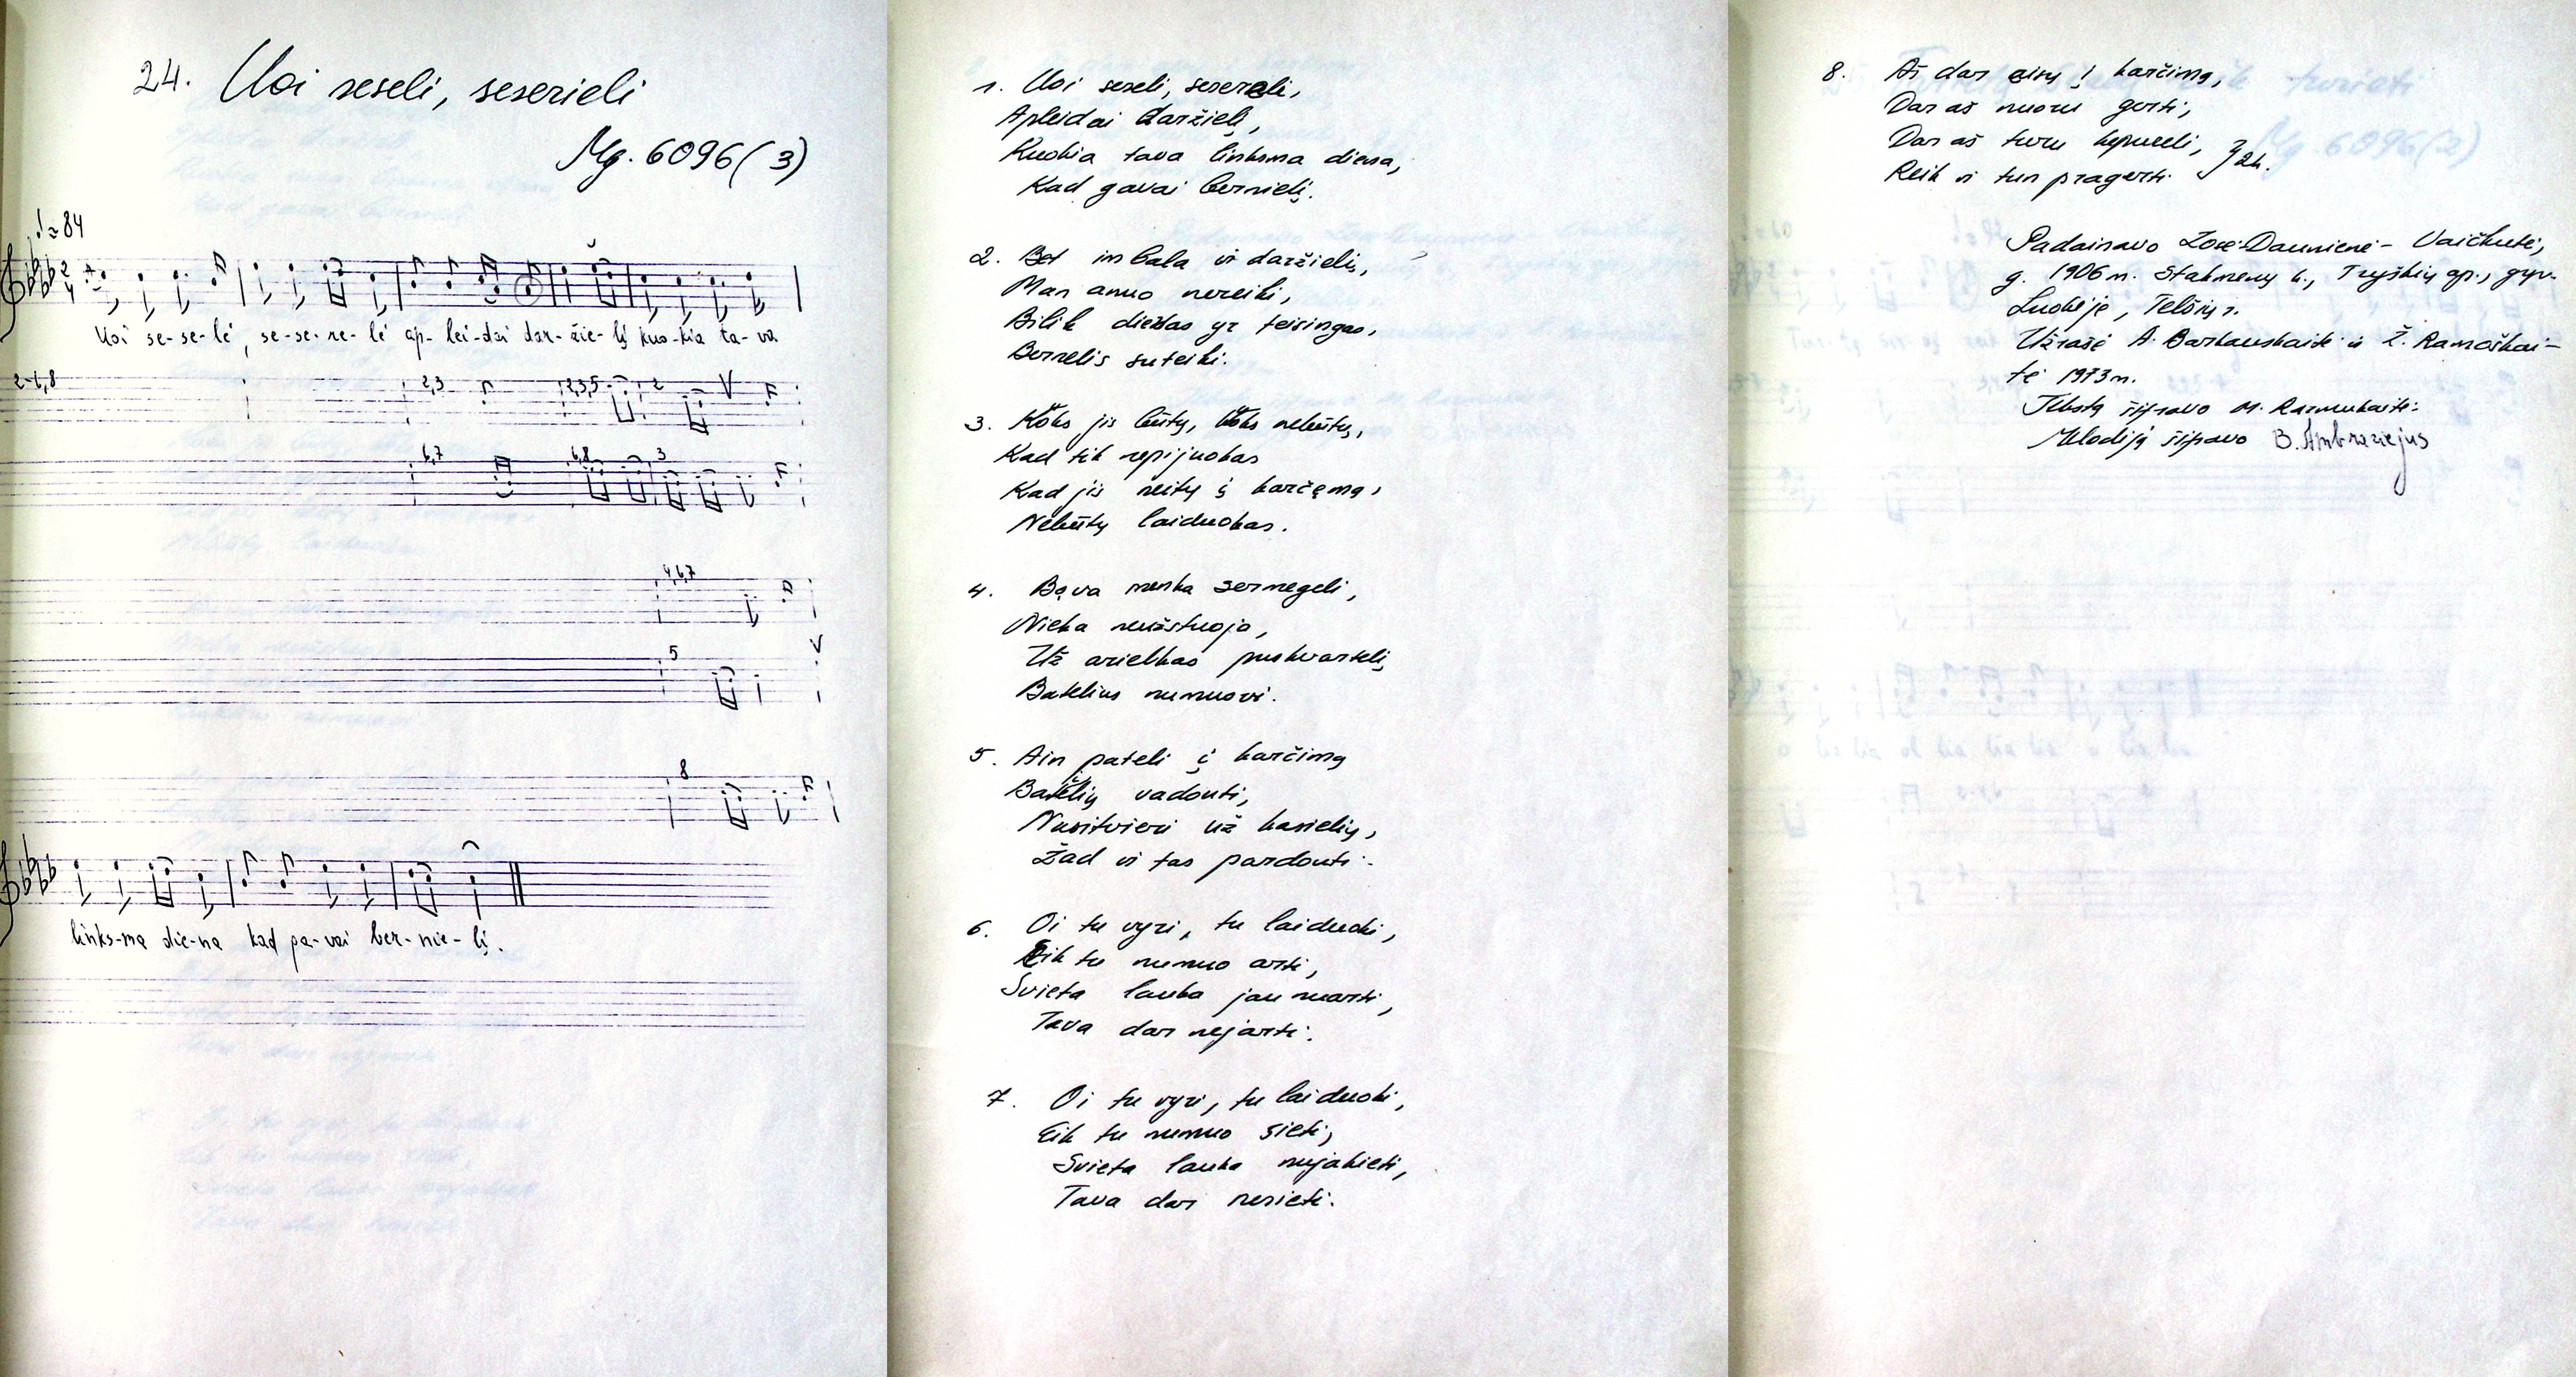 24. Uoi seseli, seserieli
Mg. 6096(3)
♩≈84
Uoi se-se-lė, se-se-re-lė ap-lei-dai dar-žie-lį kuo-kia ta-va
2-6,8 2,3 2,3,5 2 V
6,7 6,8 3
4,6,7
5 V
8
links-ma die-na kad ga-vai ber-nie-lį.
1. Uoi seseli, sesereli,
Apleidai daržielį,
Kuokia tava linksma diena,
Kad gavai bernielį.
2. Bet im bala vi daržielis,
Man anuo nereiki,
Bilik diedas yr teisingas,
Bernelis suteiki.
3. Koks jis būtų, koks nebūtų,
Kad tik nepijuokas
Kad jis neitų į karčęmą,
Nebūtų laiduokas.
4. Bova menka sermegeli,
Nieka neužstuoja,
Už arielkas puskvartelį
Batelius numuovi.
5. Ain pateli į karčimą
Batelių vadouti,
Nusitvieri už kasielių,
Žad vi tas pardouti.
6. Oi tu vyri, tu laiduoki,
Eik tu numuo arti,
Svieta lauka jau nuarti,
Tava dar nejarti.
7. Oi tu vyri, tu laiduoki,
Eik tu numuo sieti,
Svieta lauka nujakieti,
Tava dar nesieti.
8. Aš dar eisų į karčimą,
Dar aš nuoru gerti,
Dar aš turu kepureli,
Reik vi tun pragerti. } 2k.
Padainavo Zosė Daunienė - Vaičkutė,
g. 1906 m. Stakmenų k., Tryškių ap., gyv.
Luokėje, Telšių r.
Užrašė A. Barkauskaitė ir Ž. Ramoškai-
tė 1973 m.
Tekstą šifravo M. Razmukaitė.
Melodiją šifravo B. Ambraziejus